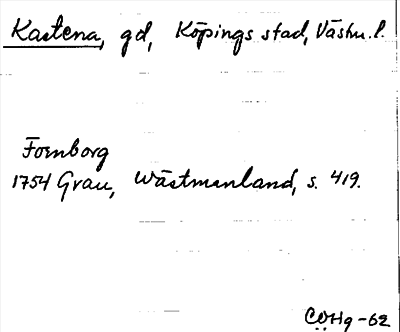 Kastena, gd, Köpings stad, Västm.l.
Fornborg
1754 Grau, Wästmanland, s. 419.
CÖHg -62